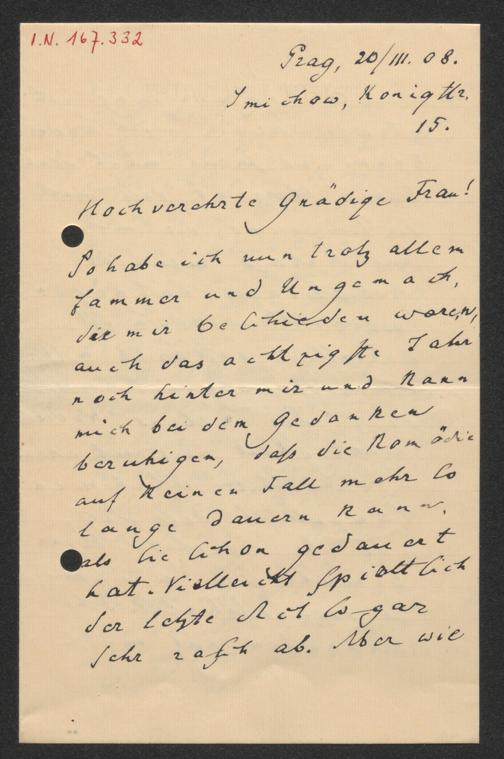 I.N. 167.332
Prag, 20/III. 08.
Smichow, Königstr.
15.
Hochverehrte gnädige Frau!
So habe ich nun trotz allem
Jammer und Ungemach,
die mir beschieden waren,
auch das achtzigste Jahr
noch hinter mir und kann
mich bei dem Gedanken
beruhigen, daß die Komödie
auf keinen Fall mehr so
lange dauern kann,
als sie schon gedauert
hat. Vielleicht spielt sich
der letzte Act sogar
sehr rasch ab. Aber wie